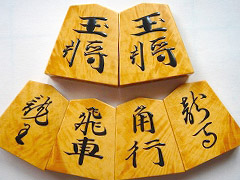 玉将
玉将
龍王
飛車
角行
龍馬